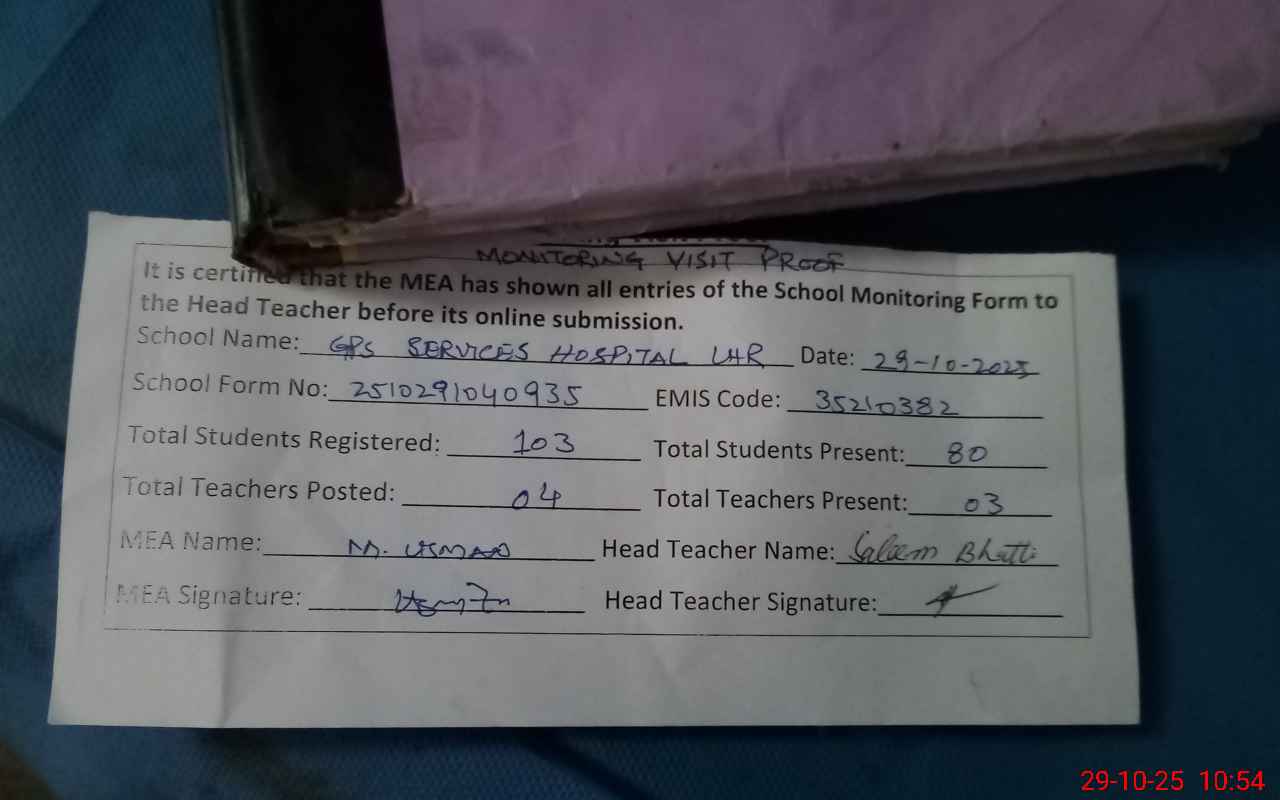 MONITORING VISIT PROOF
It is certified that the MEA has shown all entries of the School Monitoring Form to
the Head Teacher before its online submission.
School Name: GPS SERVICES HOSPITAL LHR Date: 29-10-2025
School Form No: 2510291040935 EMIS Code: 35210382
Total Students Registered: 103 Total Students Present: 80
Total Teachers Posted: 04 Total Teachers Present: 03
MEA Name: M. USMAN Head Teacher Name: Saleem Bhatti
MEA Signature: Head Teacher Signature:
29-10-25 10:54